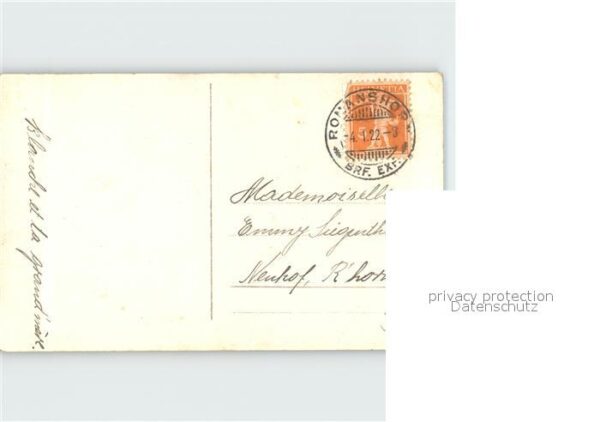 Blandre et la grand'mère.
HELVETIA
ROMANSHORN
-4.1.22-8
BRF. EXP.
Mademoiselle
Emmy Siegenth
Neuhof, R'horn
privacy protection
Datenschutz